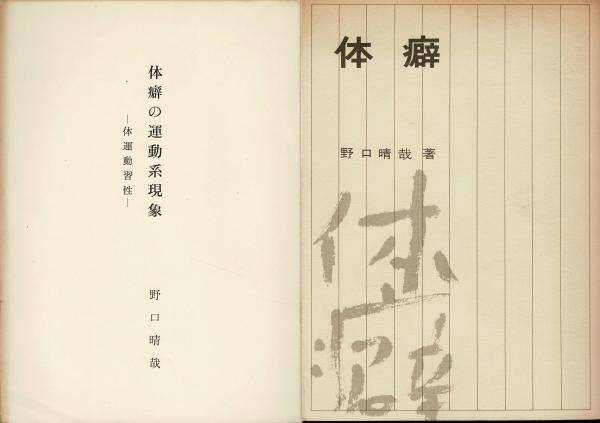 体癖の運動系現象
―体運動習性―
野口晴哉
体癖
野口晴哉 著
体癖